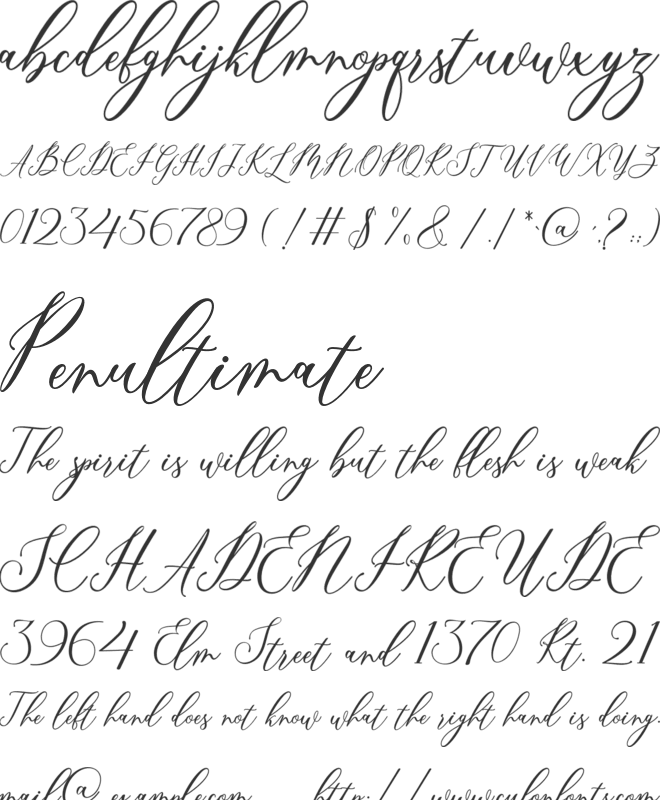 abcdefghijklmnopqrstuvwxyz
ABCDEFGHIJKLMNOPQRSTUVWXYZ
0123456789 ( ! # $ % & / . / * ` @ ' : ? ; : )
Penultimate
The spirit is willing but the flesh is weak
SCHADENFREUDE
3964 Elm Street and 1370 Rt. 21
The left hand does not know what the right hand is doing.
mail@example.com http://www.cufonfonts.com